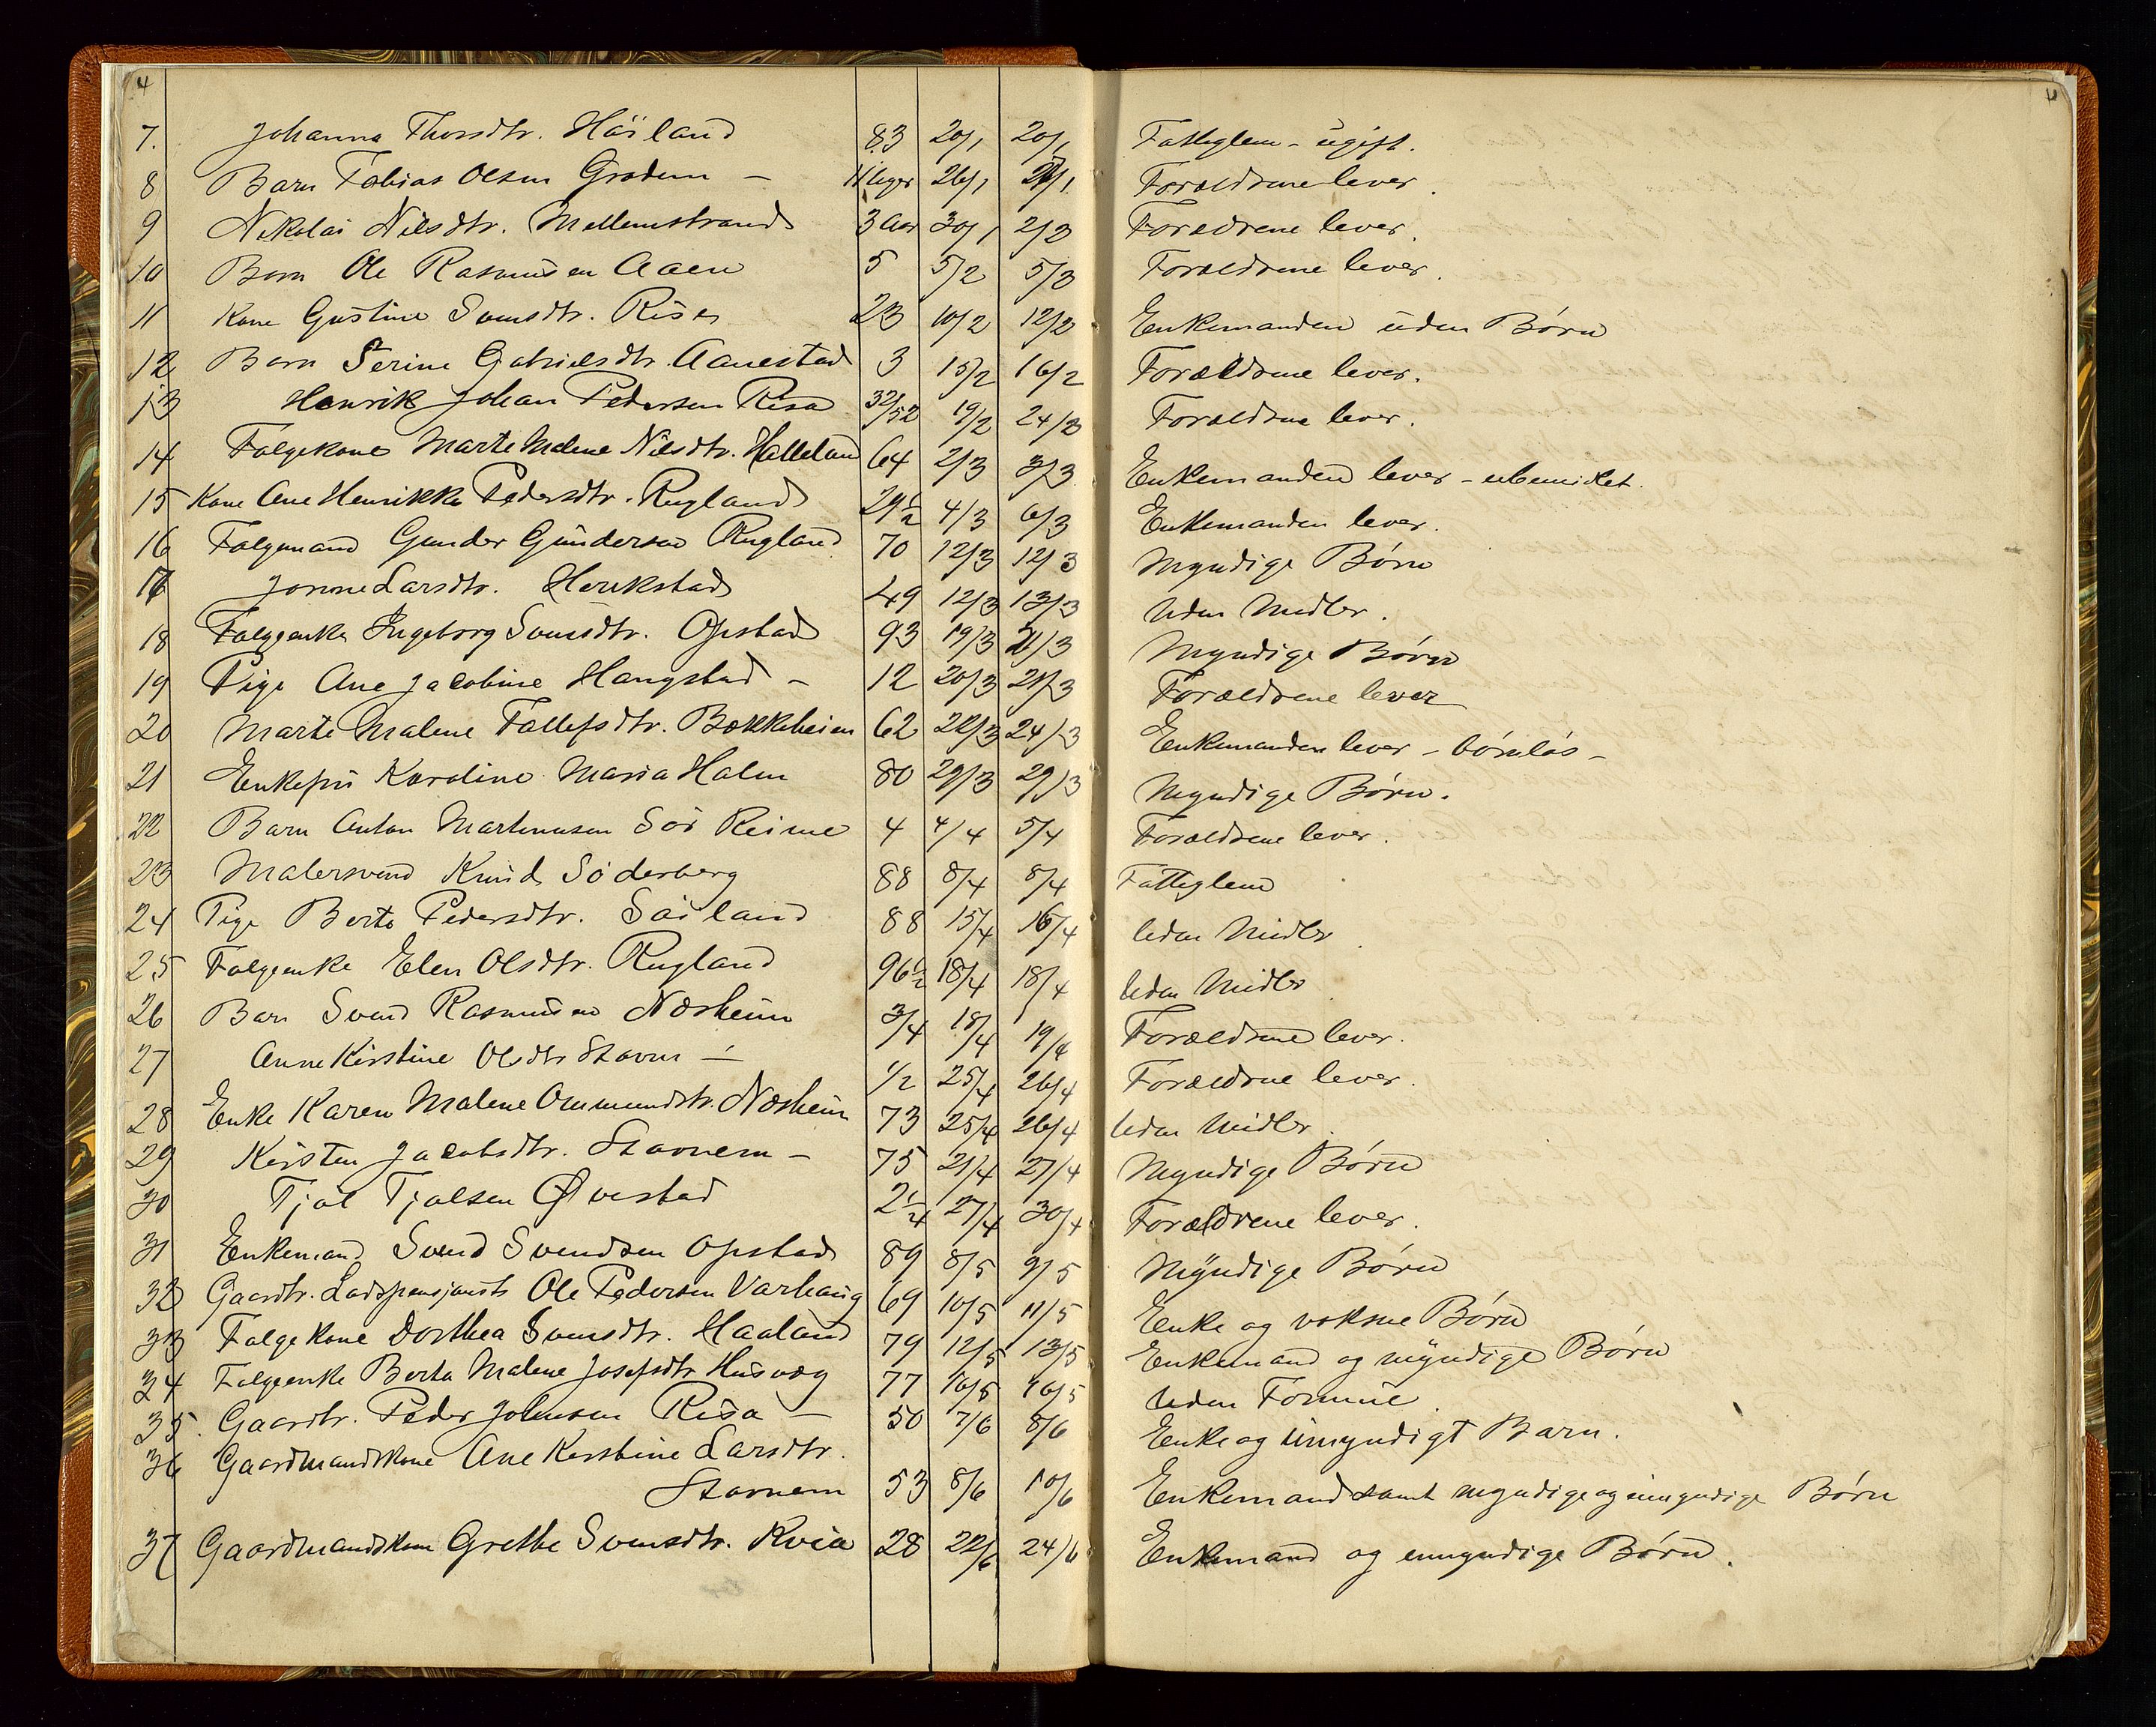 4
7. Johanna Thorsdtr. Håiland 83 20/1 20/1 Fattiglem - ugift.
8 Barn Tobias Olsen Grødem - 11 uger 26/1 27/1 Forældrene lever.
9 Nikolai Nilsdtr. Mellemstrand 3 Aar 30/1 2/2 Forældrene lever.
10 Barn Ole Rasmusen Aaen 5 5/2 5/2 Forældrene lever.
11 Kone Gustine Svensdtr. Risa 23 10/2 12/2 Enkemanden uden Børn
12 Barn Serine Gabrielsdtr. Aanestad 3 15/2 16/2 Forældrene lever.
13 Henrik Johan Pedersen Risa 32/52 19/2 24/2 Forældrene lever.
14 Følgekone Marte Malene Nilsdtr. Halleland 64 2/3 3/3 Enkemanden lever - ubemidlet.
15 Kone Ane Henrikke Pedersdtr. Rugland 29 1/2 4/3 6/3 Enkemanden lever.
16 Følgemand Gunder Gundersen Rugland 70 12/3 12/3 Myndige Børn
17 Jonne Larsdtr. Herikstad 49 12/3 13/3 Uden Midler.
18 Følgeenke Ingeborg Svensdtr. Opstad 93 19/3 21/3 Myndige Børn
19 Pige Ane Jacobine Haugstad - 12 20/3 21/3 Forældrene lever
20 Marte Malene Tollefsdtr. Bækkeheien 62 22/3 24/3 Enkemanden lever - børnløs -
21 Enkefru Karoline Maria Halm 80 29/3 29/3 Myndige Børn.
22 Barn Anton Martinusen Sør Reime 4 4/4 5/4 Forældrene lever.
23 Malersvend Knud Söderberg 88 8/4 8/4 Fattiglem
24 Pige Berta Pedersdtr. Söiland 88 15/4 16/4 Uden Midler.
25 Følgeenke Elen Olsdtr. Rugland 96 1/2 18/4 18/4 Uden Midler
26 Barn Svend Rasmusen Næsheim 3/4 18/4 19/4 Forældrene lever.
27 Anne Kirstine Olsdtr. Stavnem - 1/2 25/4 26/4 Forældrene lever.
28 Enke Karen Malene Ommundsdtr. Næsheim 73 25/4 26/4 Uden Midler.
29 Kirsten Jacobsdtr. Stavnem - 75 21/4 27/4 Myndige Børn
30 Tjøl Tjølsen Øvestad 2 1/4 27/4 30/4 Forældrene lever.
31 Enkemand Svend Svendsen Opstad 89 8/5 9/5 Myndige Børn
32 Gaardbr. Ladspensjonist Ole Pedersen Varhaug 69 10/5 11/5 Enke og voksne Børn
33 Følgekone Dorthea Svensdtr. Haaland 79 12/5 13/5 Enkemand og myndige Børn
34 Følgeenke Berta Malene Josefsdtr. Husvæg 77 16/5 16/5 Uden Formue.
35. Gaardbr. Peder Johnsen Risa - 50 7/6 8/6 Enke og umyndigt Barn.
36 Gaardmandskone Ane Kerstine Larsdtr.
Stavnem 53 8/6 10/6 Enkemand samt myndige og umyndige Børn
37 Gaardmandskone Grethe Svensdtr. Kvia 28 22/6 24/6 Enkemand og umyndige Børn.